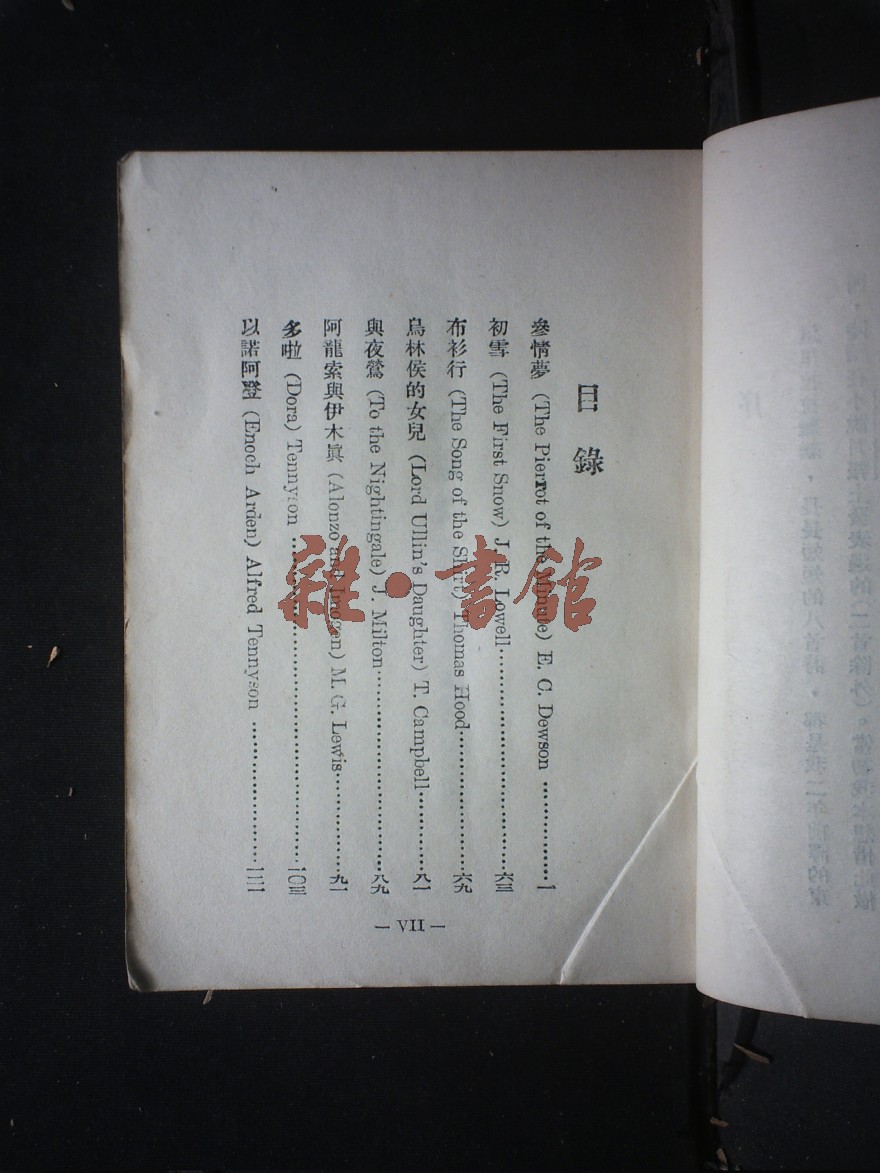 目錄
參情夢 (The Pierrot of the Minute) E. C. Dewson ………………一
初雪 (The First Snow) J. R. Lowell………………………………六三
布衫行 (The Song of the Shirt) Thomas Hood……………………六九
烏林侯的女兒 (Lord Ullin's Daughter) T. Campbell…………八一
與夜鶯 (To the Nightingale) J. Milton……………………………八九
阿龍索與伊木眞 (Alonzo and Imogen) M. G. Lewis……………九一
多啦 (Dora) Tennyson ……………………………………………一〇三
以諾阿澄 (Enoch Arden) Alfred Tennyson ……………………
— VII —
雜·書館